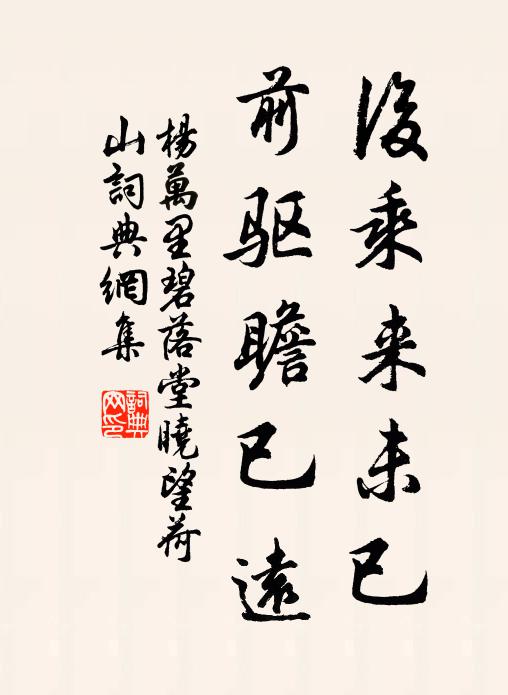 後乘来未已
前驱瞻已遠
楊萬里碧落堂曉望荷
山詞典網集
詞典网印